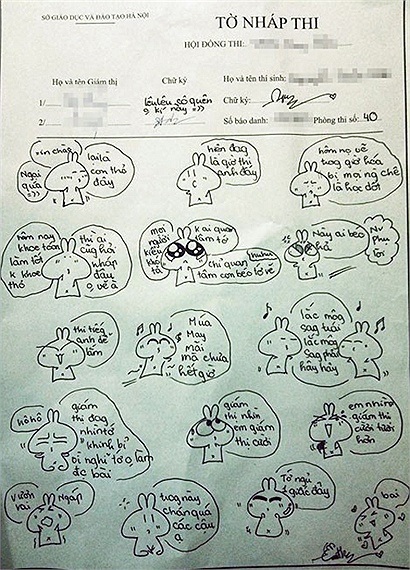 SỞ GIÁO DỤC VÀ ĐÀO TẠO HÀ NỘI
TỜ NHÁP THI
HỘI ĐỒNG THI:
Họ và tên Giám thị
Chữ ký
Họ và tên thí sinh:
1/
lêu lêu cô quên
kí này :))
Chữ ký:
2/
Số báo danh:
Phòng thi số: 40
xin chào
Ngại
quá :))
lại là
con thỏ
đây
hên đag
là giờ thi
anh đấy
hôm nọ vẽ
trog giờ hóa
bị mọi ng chê
là học dốt
hôm nay
khoe toán
làm tốt
k khoe
thỏ
thì ai
cũg hỏi
nháp
đâu
vẽ à
mọi
người
kiểu
k ai quan
tâm tớ
huhu
chỉ quan
tâm con béo
Này ai béo
hả
thi tiếg
anh dễ
lắm
Múa
May
mãi
mà chưa
hết giờ
lắc môg
sag trái
lắc môg
sag phải
hây hây
hô hô
giám
thị đag
nhìn tớ
khinh bỉ
làm
đc bài
giám
thị nhìn
em giám
thị cười
em nhìn
giám thị
cười tươi
hơn
Vươn
vai
Ngáp
trog này
chán quá
các cậu
ạ
Tớ ngủ
1 giấc đây
bai